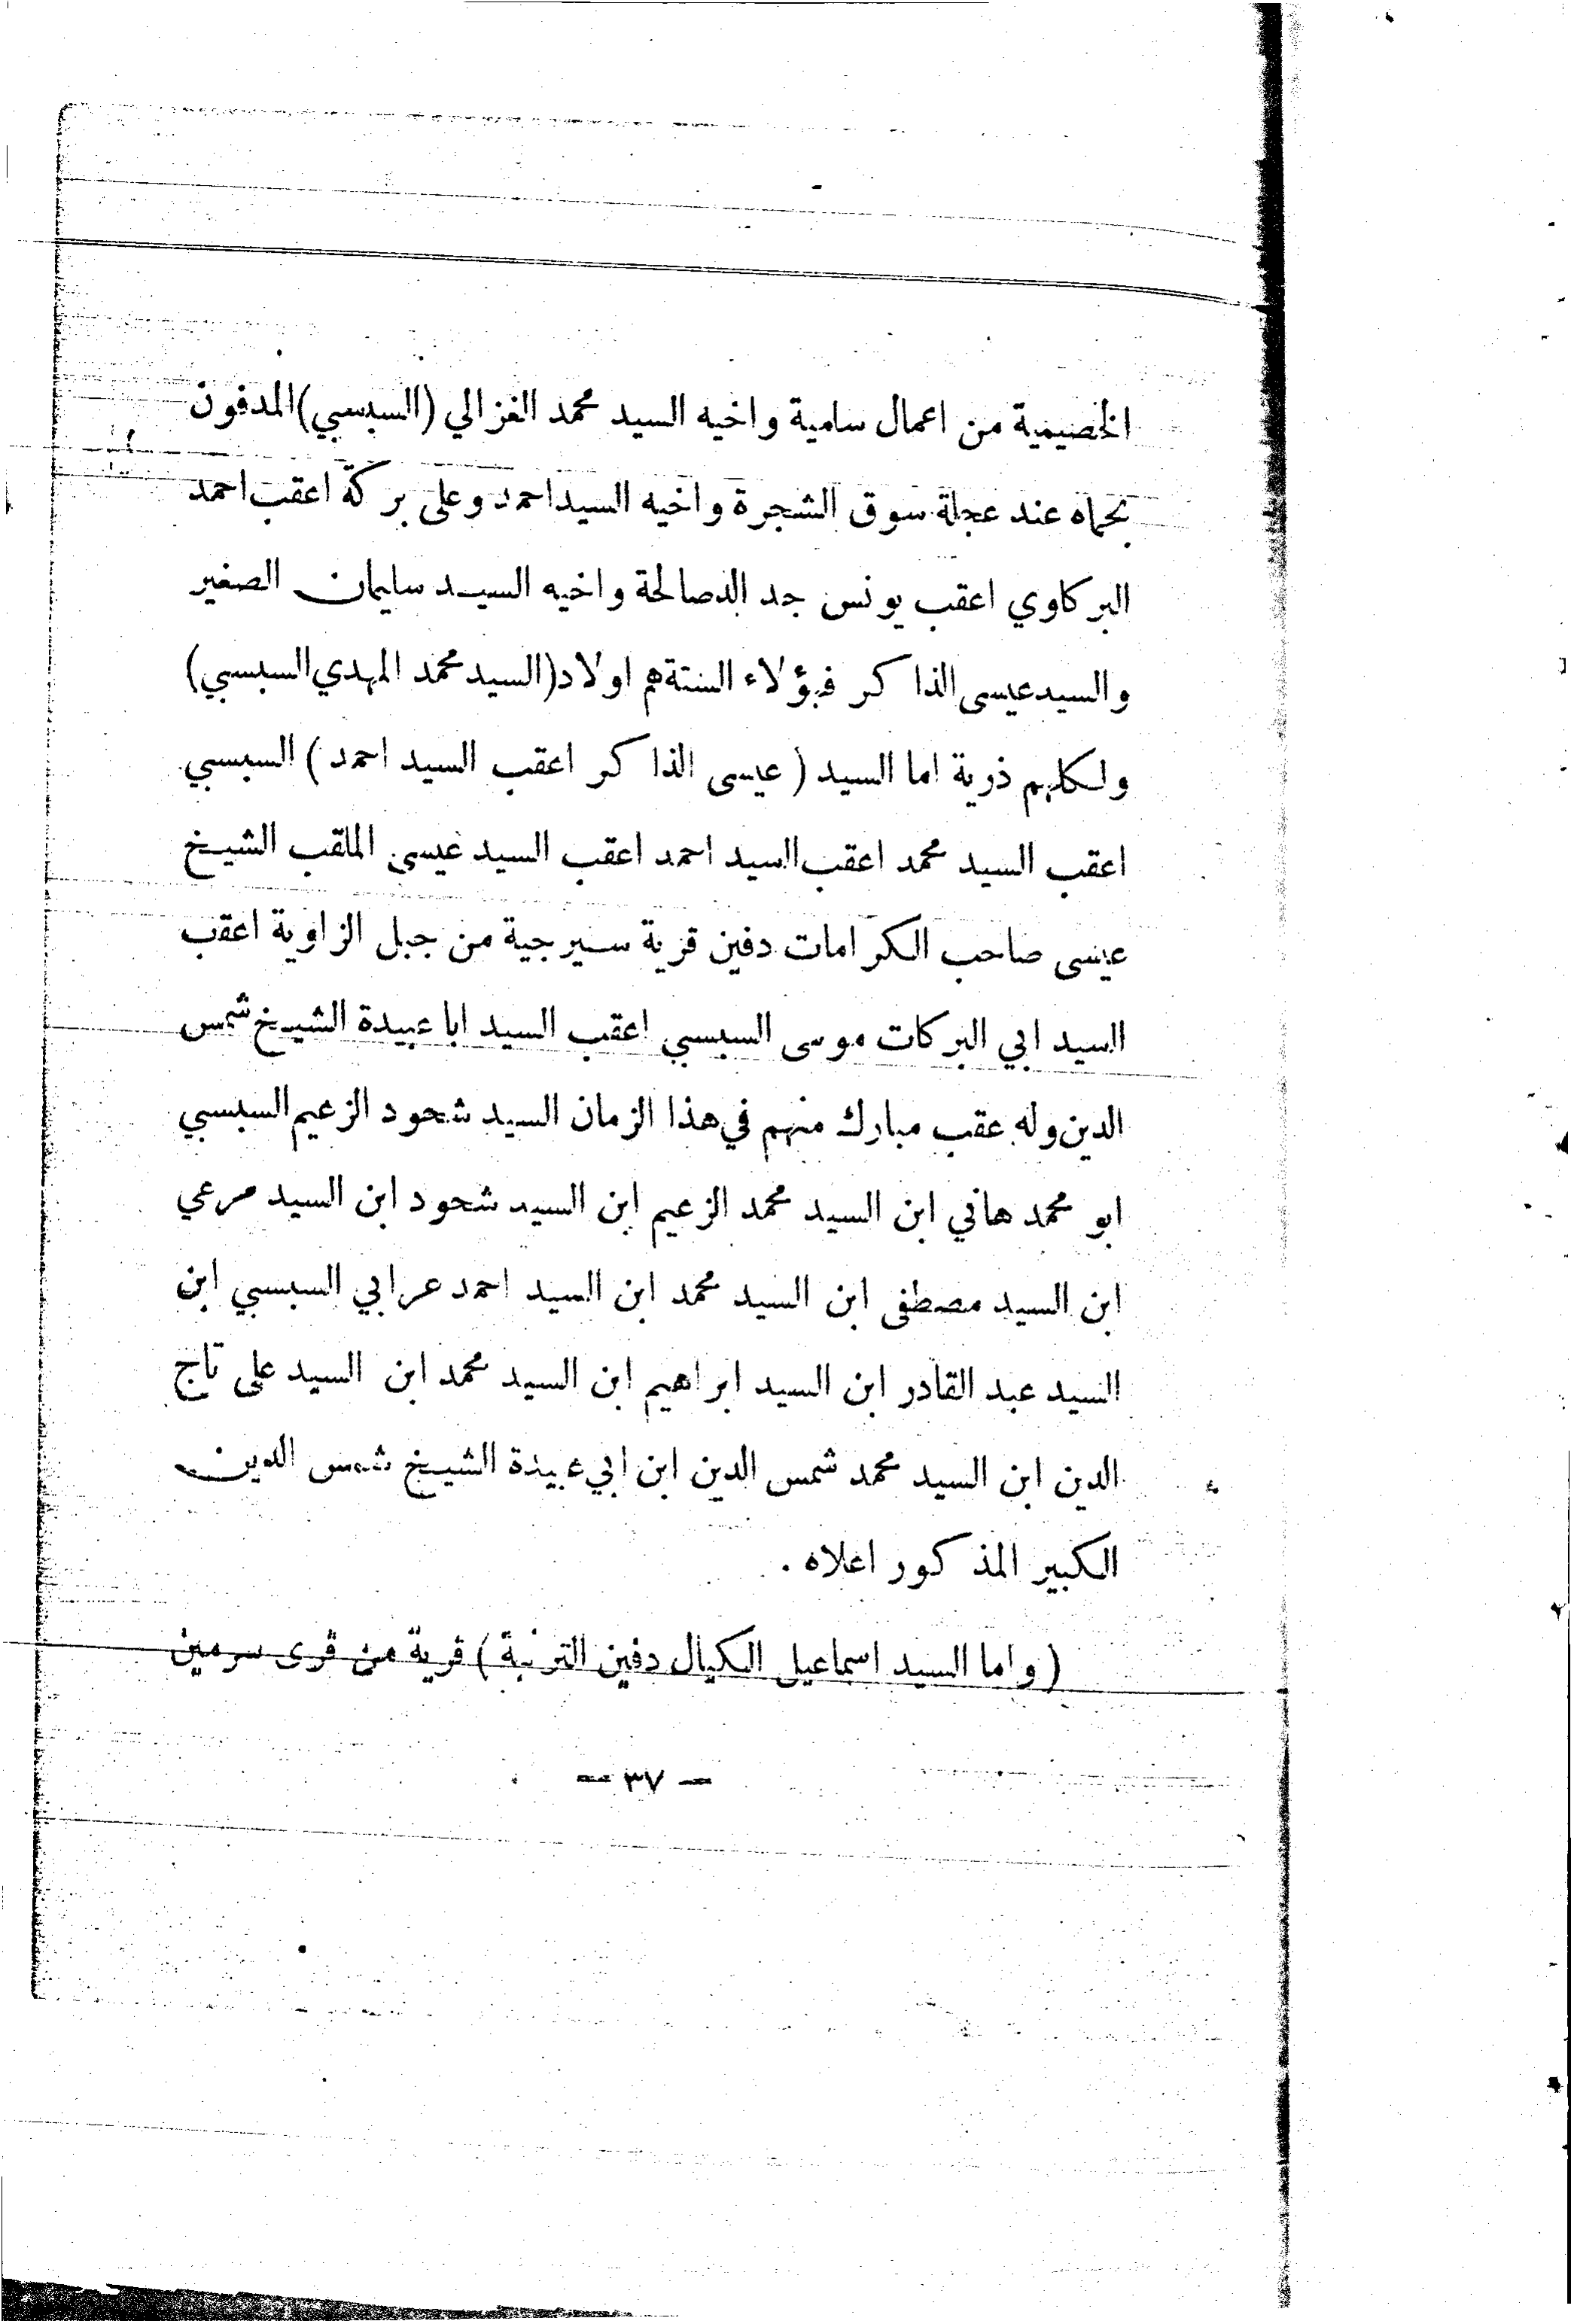 الخصيمية من اعمال سامية واخيه السيد محمد الغزالي (السبسبي) المدفون
بحماه عند عجلة سوق الشجرة واخيه السيد احمد وعلى بركة اعقب احمد
البركاوي اعقب يونس جد الدصالحة واخيه السيد سليمان الصغير
والسيد عيسى الذاكر فهؤلاء الستة هم اولاد (السيد محمد المهدي السبسبي)
ولكلهم ذرية اما السيد (عيسى الذاكر اعقب السيد احمد) السبسبي
اعقب السيد محمد اعقب السيد احمد اعقب السيد عيسى الملقب الشيخ
عيسى صاحب الكرامات دفين قرية سيرجية من جبل الزاوية اعقب
السيد ابي البركات موسى السبسبي اعقب السيد ابا عبيدة الشيخ شمس
الدين وله عقب مبارك منهم في هذا الزمان السيد شحود الزعيم السبسبي
ابو محمد هاني ابن السيد محمد الزعيم ابن السيد شحود ابن السيد مرعي
ابن السيد مصطفى ابن السيد محمد ابن السيد احمد عرابي السبسبي ابن
السيد عبد القادر ابن السيد ابراهيم ابن السيد محمد ابن السيد علي تاج
الدين ابن السيد محمد شمس الدين ابن ابي عبيدة الشيخ شمس الدين
الكبير المذكور اعلاه .
(واما السيد اسماعيل الكيال دفين الترنبة) قرية من قرى سرمين
— ٣٧ —